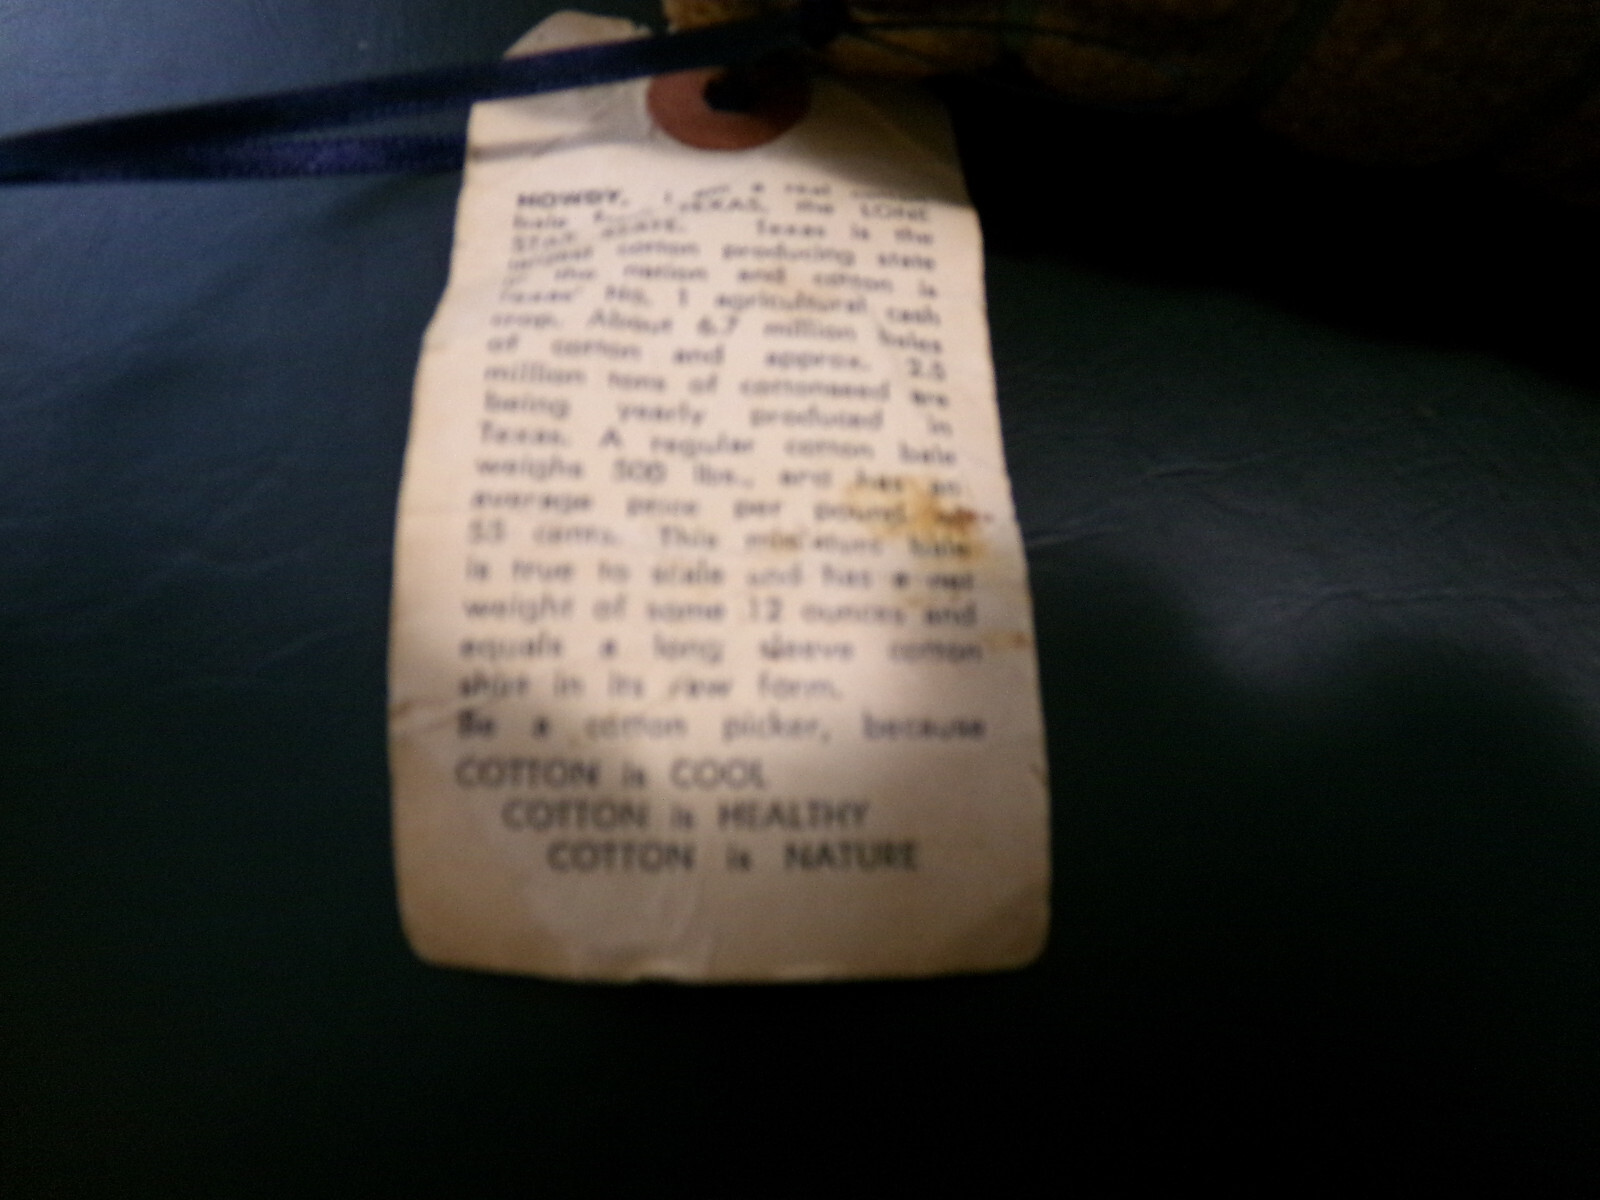 HOWDY. I am a real cotton
bale from TEXAS, the LONE
STAR STATE. Texas is the
largest cotton producing state
in the nation and cotton is
Texas' No. 1 agricultural cash
crop. About 6.7 million bales
of cotton and approx. 2.5
million tons of cottonseed are
being yearly produced in
Texas. A regular cotton bale
weighs 500 lbs., and has an
average price per pound of
55 cents. This miniature bale
is true to scale and has a net
weight of some 12 ounces and
equals a long sleeve cotton
shirt in its raw form.
Be a cotton picker, because
COTTON is COOL
COTTON is HEALTHY
COTTON is NATURE